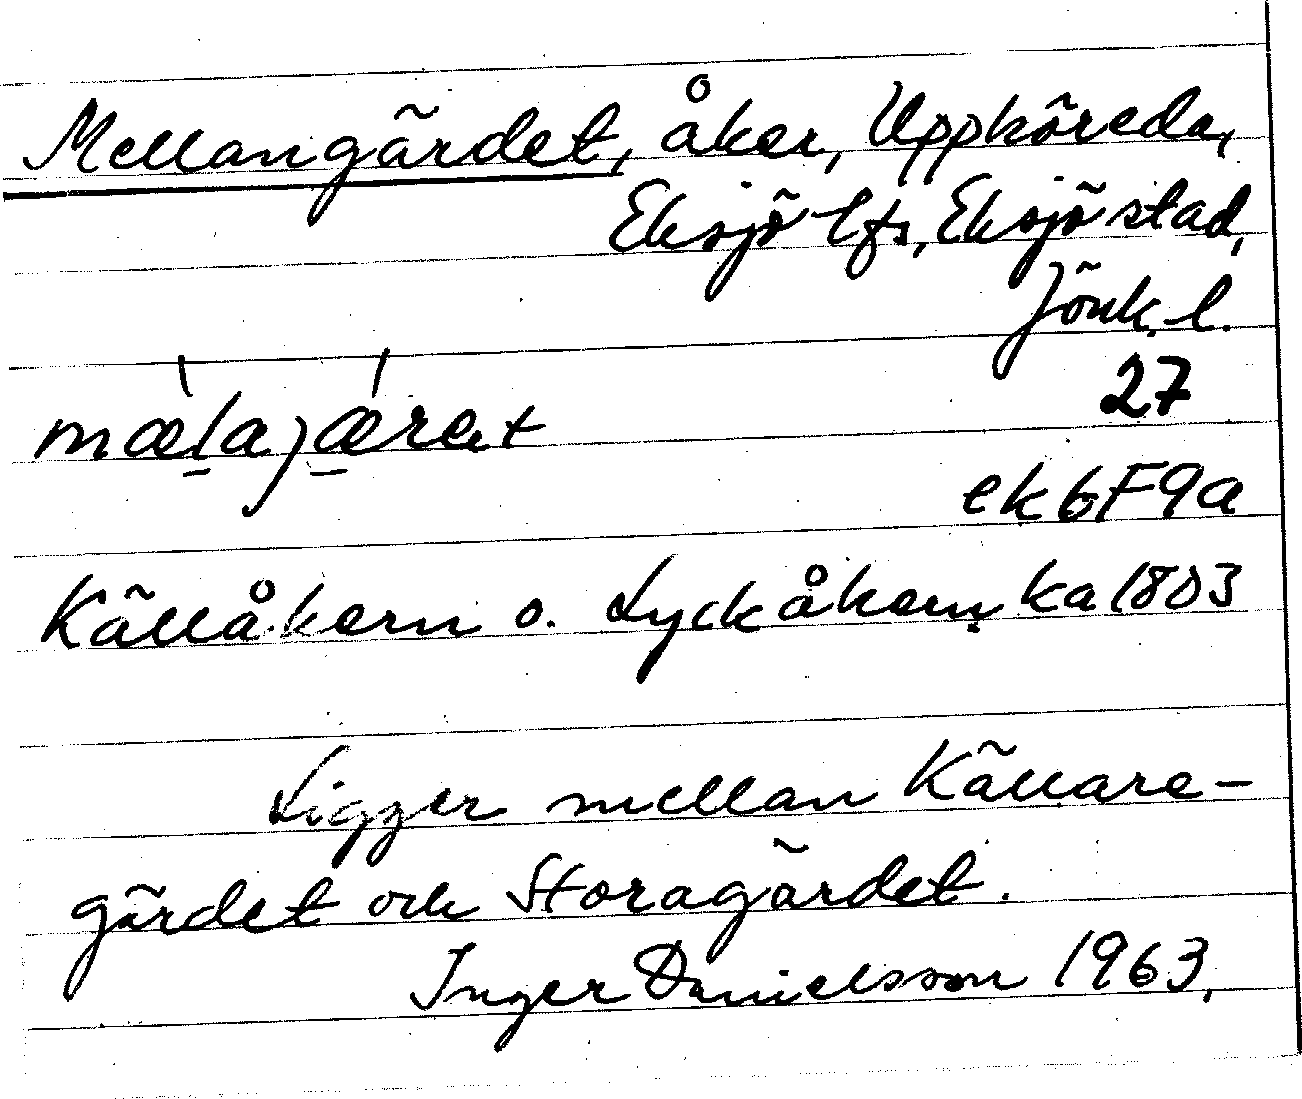 Mellangärdet, åker, Uppköreda,
Eksjö lfs, Eksjö stad,
Jönk. l.
27
mæ̀lajǽret
ek6F9a
Källåkern o. Lyckåkern ka 1803
Ligger mellan Källare-
gärdet och Storagärdet.
Inger Danielsson 1963.